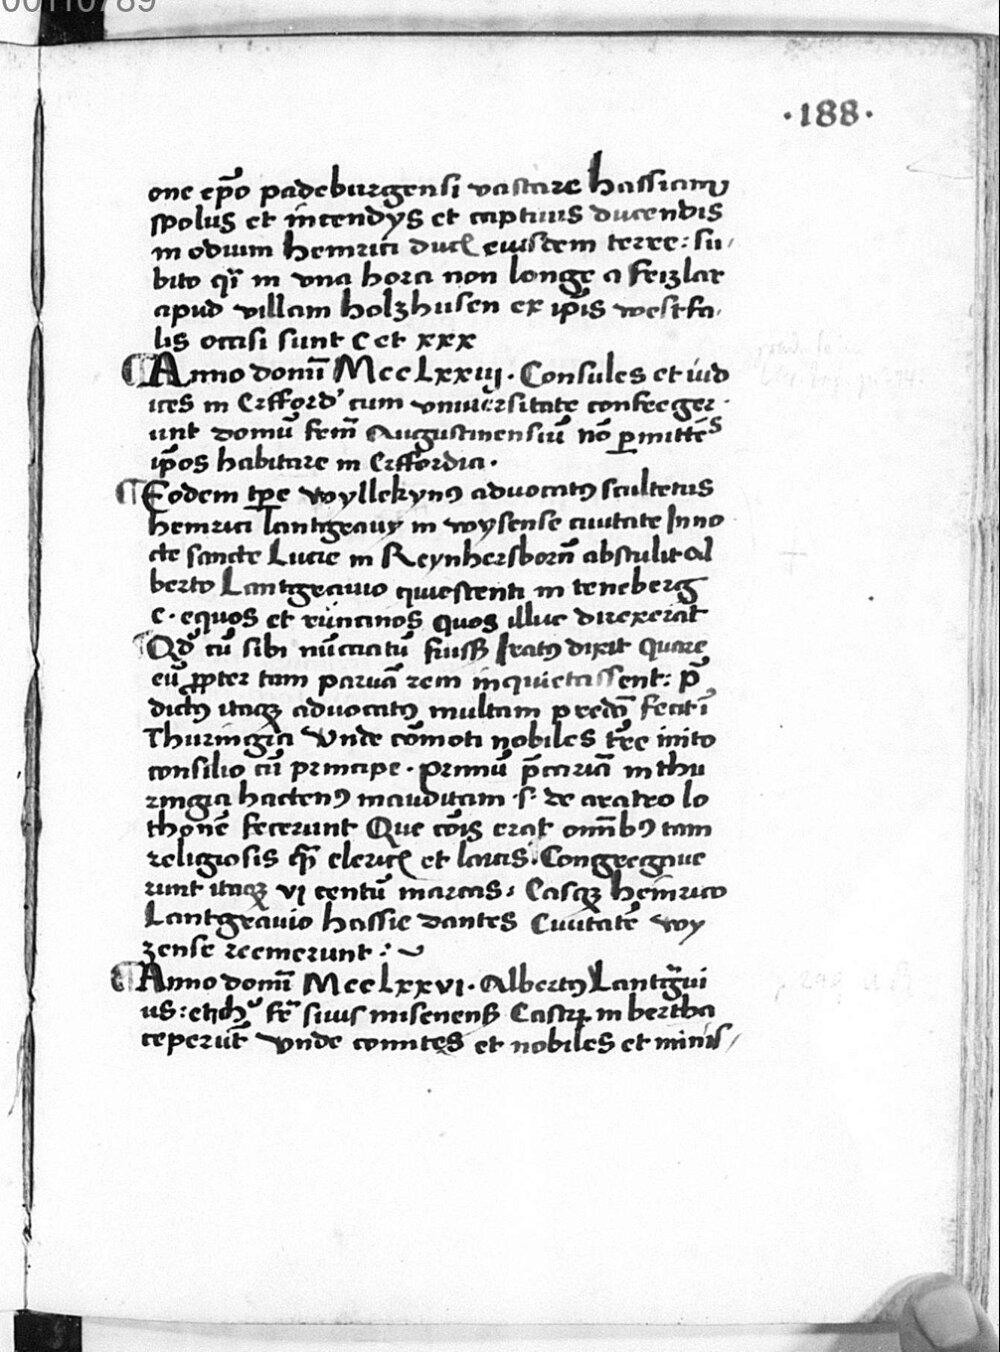 00110789
·188·
one ep̄o padeburgensi vastare hassiam
spolus et incendys et captiuis ducendis
in odium heinrici duc̄ eiusdem terre: su/
bito qͥ in vna hora non longe a feizlar
apud villam holzhusen ex ip̄is westfa,
lis occisi sunt C et xxx
¶ Anno domī MccLxxiij· Consules et iud
ices in Erfford' cum vniuersitate confreger·
unt domū frm̄ Augustinensiū nō ꝑmittēs
ip̄os habitare in Erffordia·
¶ Eodem tpe wyllekynꝰ aduocatꝰ scultetus
heinrici lantgrauy in wysense ciuitate In no
cte sancte Lucie in Reynhersborn̄ abstulit al
berto Lantgrauio quiescenti in teneberg
c· equos et runcinos quos illuc direxerāt
Qd̄ cū sibi nūcciatū fuissꝫ Iratꝰ dixit Quare
eū ꝓpter tam paruā rem inquietassent: p̄
dictꝰ itaqꝫ aduocatꝰ multam predā fecit ī
Thuringia Vnde cōmoti nobiles tr̄e inito
consilio cū principe· primū p̄cariā in thu
ringia hactenꝰ inauditam ·s· de aratro lo
thonē fecerunt Que cōis erat omībꝰ tam
religiosis qͣ̄ cleric̄ et laicis· Congregaue
runt itaqꝫ vi centū marcas: Casqꝫ heinrico
Lantgrauio hassie dantes Ciuitatē wy
zense reemerunt:
¶ Anno domī MccLxxvi· Albertꝰ Lantgͣui
us: et fr̄ siuis misenensꝫ Castrꝫ in bertha
ceperūt Vnde comites et nobiles et minis/